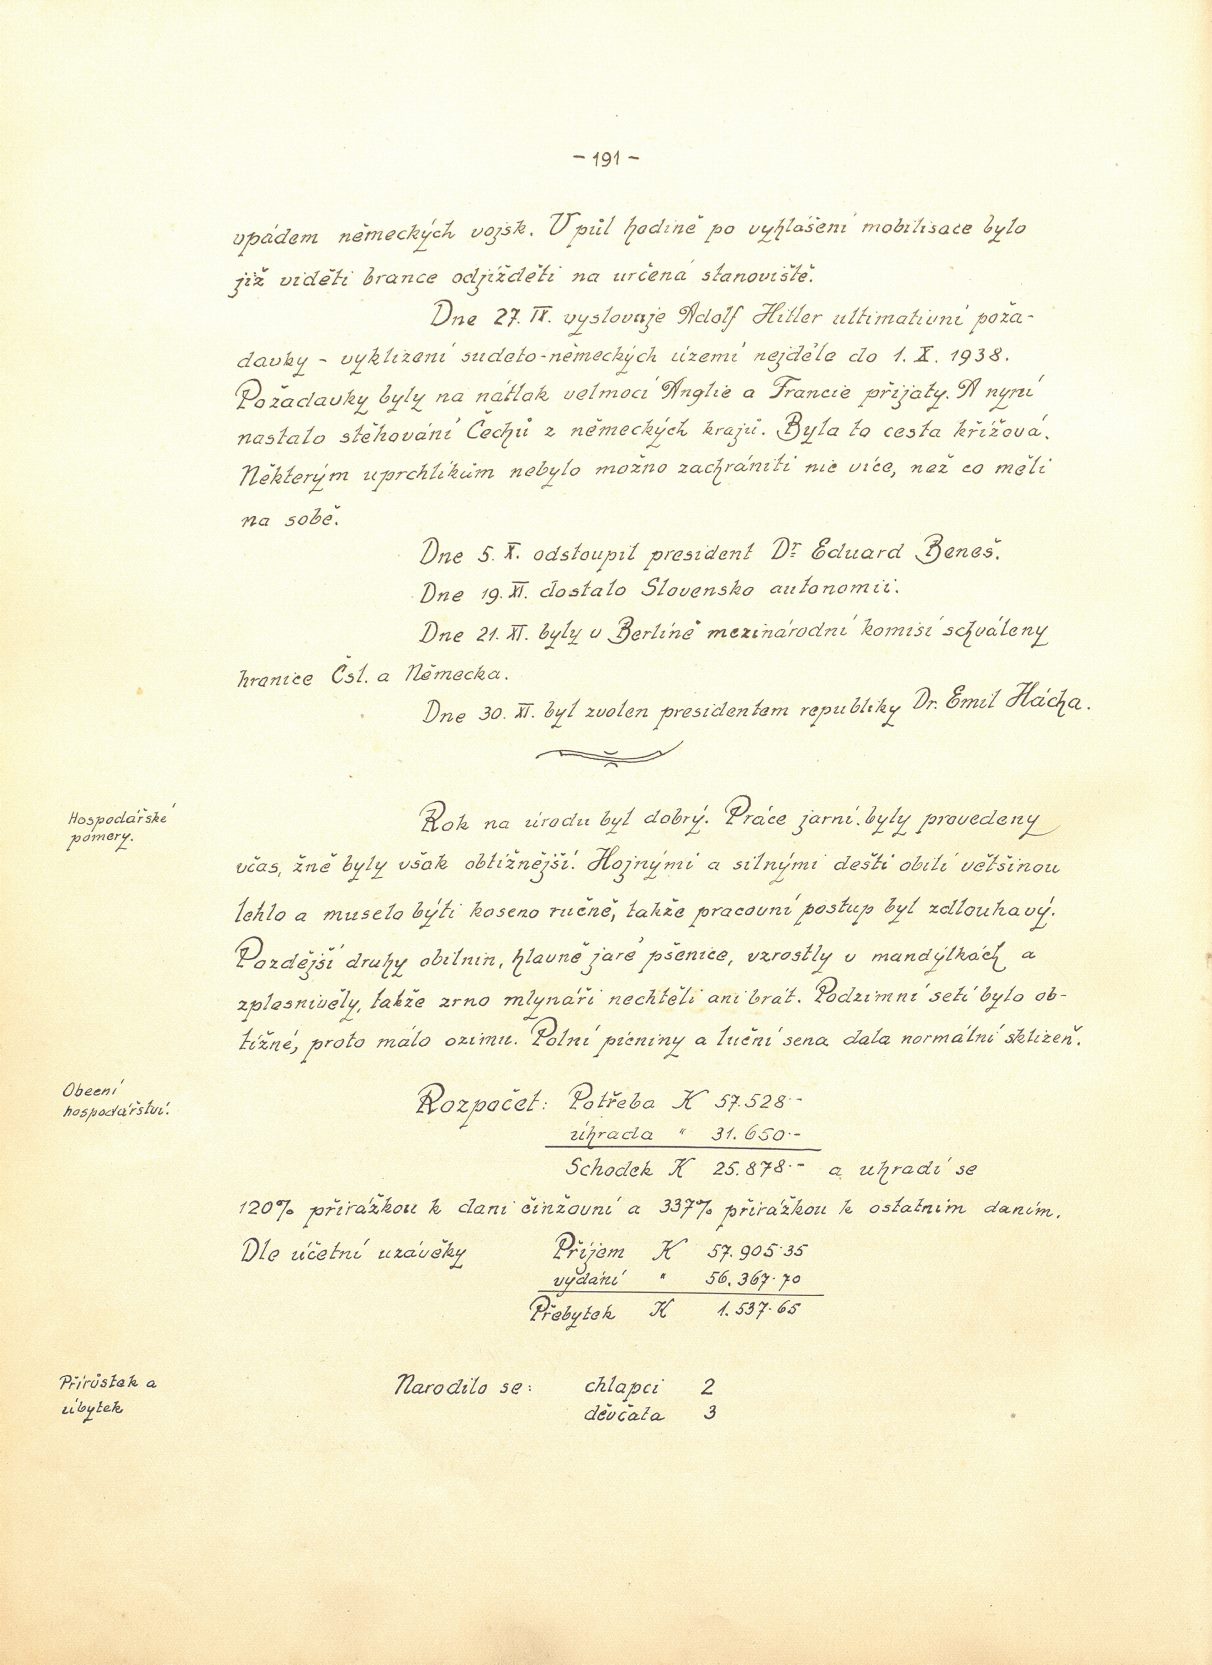 - 191 -
vpádem německých vojsk. V půl hodině po vyhlášení mobilisace bylo
již viděti brance odjížděti na určená stanoviště.
Dne 27. IX. vyslovuje Adolf Hitler ultimativní poža-
davky - vyklizení sudeto-německých území nejdéle do 1. X. 1938.
Požadavky byly na nátlak velmocí Anglie a Francie přijaty. A nyní
nastalo stěhování Čechů z německých krajů. Byla to cesta křížová.
Některým uprchlíkům nebylo možno zachrániti nic více, než co měli
na sobě.
Dne 5. X. odstoupil president Dr Eduard Beneš.
Dne 19. XI. dostalo Slovensko autonomii.
Dne 21. XI. byly v Berlíně mezinárodní komisí schváleny
hranice Čsl. a Německa.
Dne 30. XI. byl zvolen presidentem republiky Dr. Emil Hácha.
Hospodářské
poměry.
Rok na úrodu byl dobrý. Práce jarní byly provedeny
včas, žně byly však obtížnější. Hojnými a silnými dešti obilí většinou
lehlo a muselo býti koseno ručně, takže pracovní postup byl zdlouhavý.
Pozdější druhy obilnin, hlavně jaré pšenice, vzrostly v mandýlkách a
zplesnivěly, takže zrno mlynáři nechtěli ani brát. Podzimní setí bylo ob-
tížné, proto málo ozimu. Polní pícniny a luční sena dala normální sklizeň.
Obecní
hospodářství.
Rozpočet: Potřeba K 57.528.-
úhrada " 31.650.-
Schodek K 25.878.- a uhradí se
120% přirážkou k dani činžovní a 337% přirážkou k ostatním daním.
Dle účetní uzávěky Příjem K 57.905.35
vydání " 56.367.70
Přebytek K 1.537.65
Přírůstek a
úbytek
Narodilo se: chlapci 2
děvčata 3